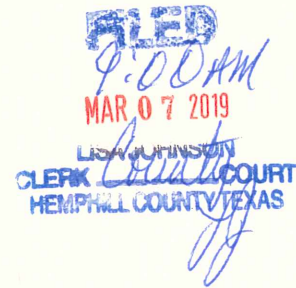 FILED
9:00 AM
MAR 07 2019
LISA JOHNSON
CLERK County COURT
HEMPHILL COUNTY TEXAS